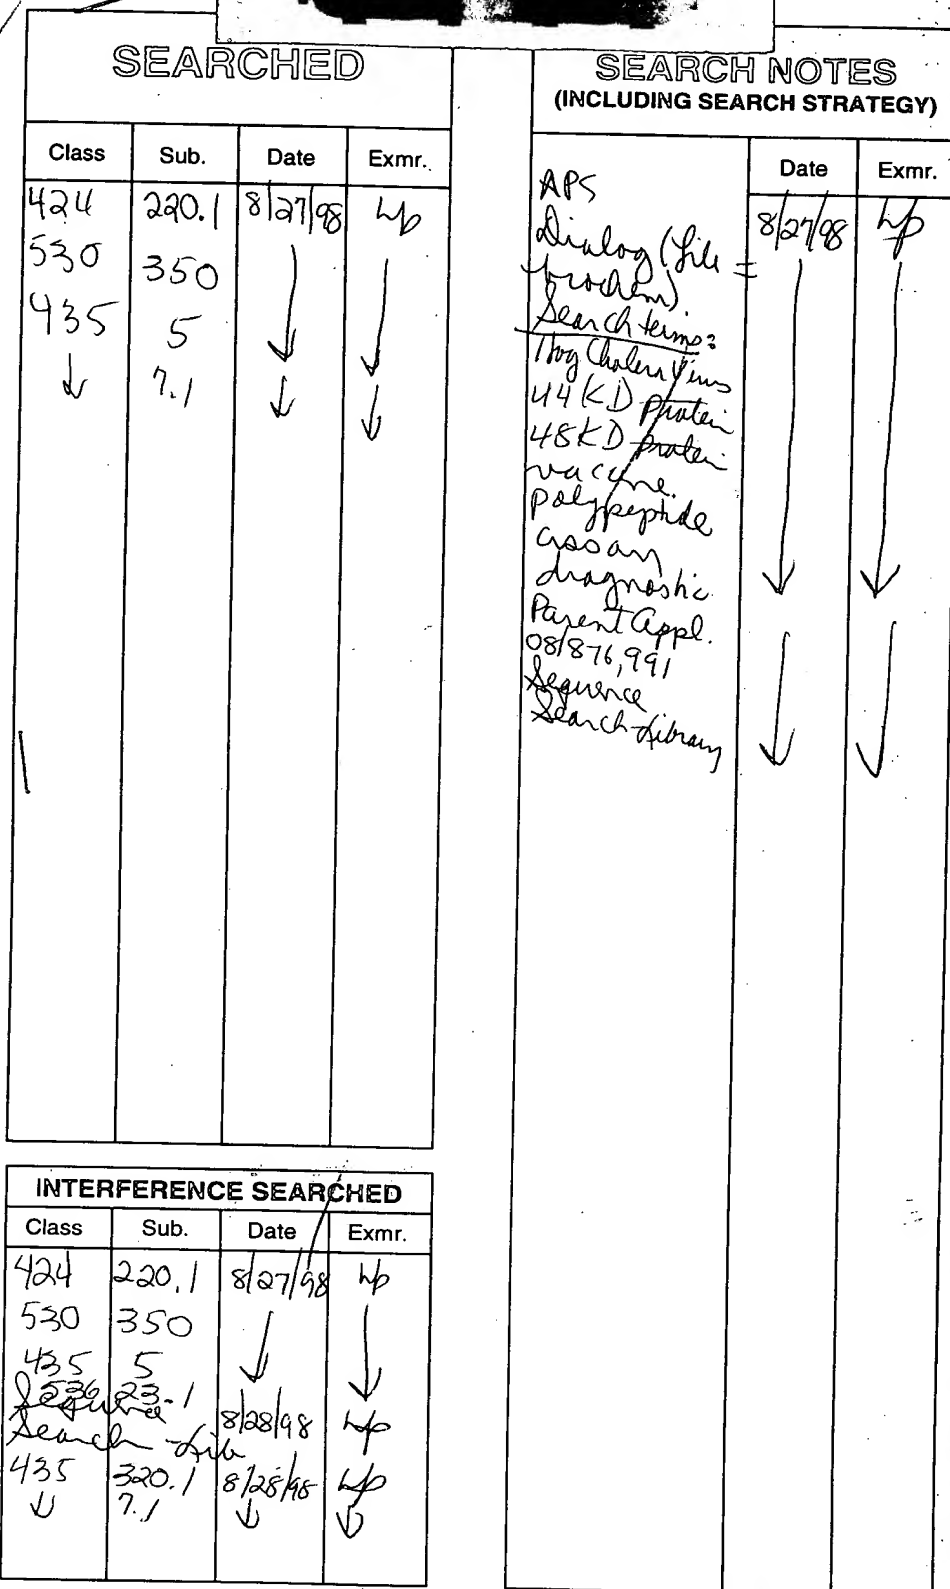 SEARCHED
Class Sub. Date Exmr.
424 220.1 8/27/98 hp
530 350
435 5
↓ 7.1 ↓ ↓
SEARCH NOTES
(INCLUDING SEARCH STRATEGY)
Date Exmr.
APS 8/27/98 hp
Dialog (file =
biochem)
Search terms:
Hog Cholera Virus
44 KD protein
48 KD protein
vaccine
polypeptide
assay
diagnostic
Parent Appl.
08/876,991
Sequence
Search-Library
INTERFERENCE SEARCHED
Class Sub. Date Exmr.
424 220.1 8/27/98 hp
530 350
435 5
536 23.1
Sequence
Search-Lib 8/28/98 hp
435 320.1 8/28/98 hp
↓ 7.1 ↓ ↓